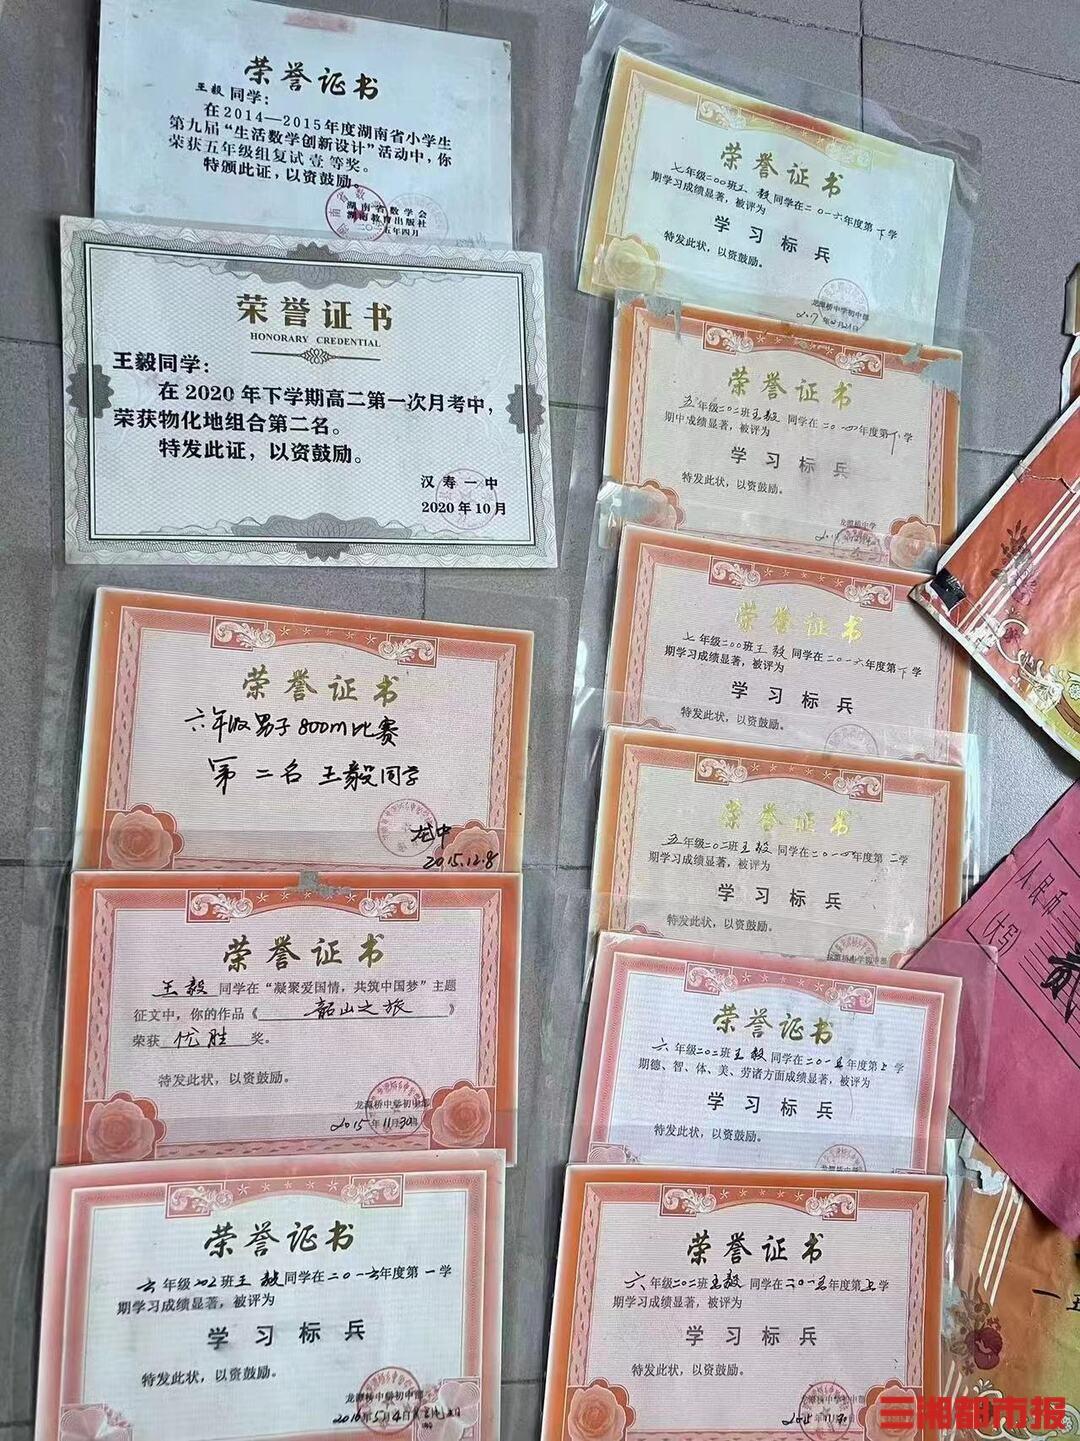 荣誉证书
王毅同学：
在2014—2015年度湖南省小学生
第九届“生活数学创新设计”活动中，你
荣获五年级组复试壹等奖。
特颁此证，以资鼓励。
湖南省数学会
湖南教育出版社
二〇一五年四月
荣誉证书
HONORARY CREDENTIAL
王毅同学：
在2020年下学期高二第一次月考中，
荣获物化地组合第二名。
特发此证，以资鼓励。
汉寿一中
2020年10月
荣誉证书
六年级男子800m比赛
第二名 王毅同学
龙中
2015.12.8
荣誉证书
王毅同学在“凝聚爱国情，共筑中国梦”主题
征文中，你的作品《韶山之旅》
荣获优胜奖。
特发此状，以资鼓励。
龙潭桥中学初中部
2015年11月30日
荣誉证书
六年级202班王毅同学在二0一六年度第一学
期学习成绩显著，被评为
学习标兵
特发此状，以资鼓励。
龙潭桥中学初中部
2016年5月4日
荣誉证书
七年级二00班王毅同学在二0一六年度第下学
期学习成绩显著，被评为
学习标兵
特发此状，以资鼓励。
龙潭桥中学初中部
荣誉证书
五年级二0二班王毅同学在二0一四年度第下学
期中成绩显著，被评为
学习标兵
特发此状，以资鼓励。
龙潭桥中学
荣誉证书
七年级二00班王毅同学在二0一六年度第下学
期学习成绩显著，被评为
学习标兵
特发此状，以资鼓励。
荣誉证书
五年级二0二班王毅同学在二0一四年度第二学
期学习成绩显著，被评为
学习标兵
特发此状，以资鼓励。
龙潭桥中学初中部
荣誉证书
六年级二0二班王毅同学在二0一五年度第上学
期德、智、体、美、劳诸方面成绩显著，被评为
学习标兵
特发此状，以资鼓励。
龙潭桥中学初中部
荣誉证书
六年级二0二班王毅同学在二0一五年度第上学
期学习成绩显著，被评为
学习标兵
特发此状，以资鼓励。
龙潭桥中学初中部
人民币
大写
贰
三湘都市报